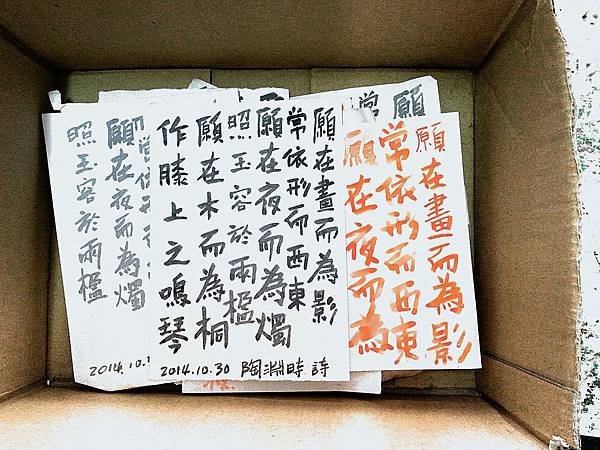 願在畫而為影
常依形而西東
願在夜而為燭
照玉容於兩楹
願在木而為桐
作膝上之鳴琴
2014.10.30 陶淵時 詩
願在畫而為影
常依形而西東
願在夜而為
常依形而
願在夜而為燭
照玉容於兩楹
2014.10.
願
常